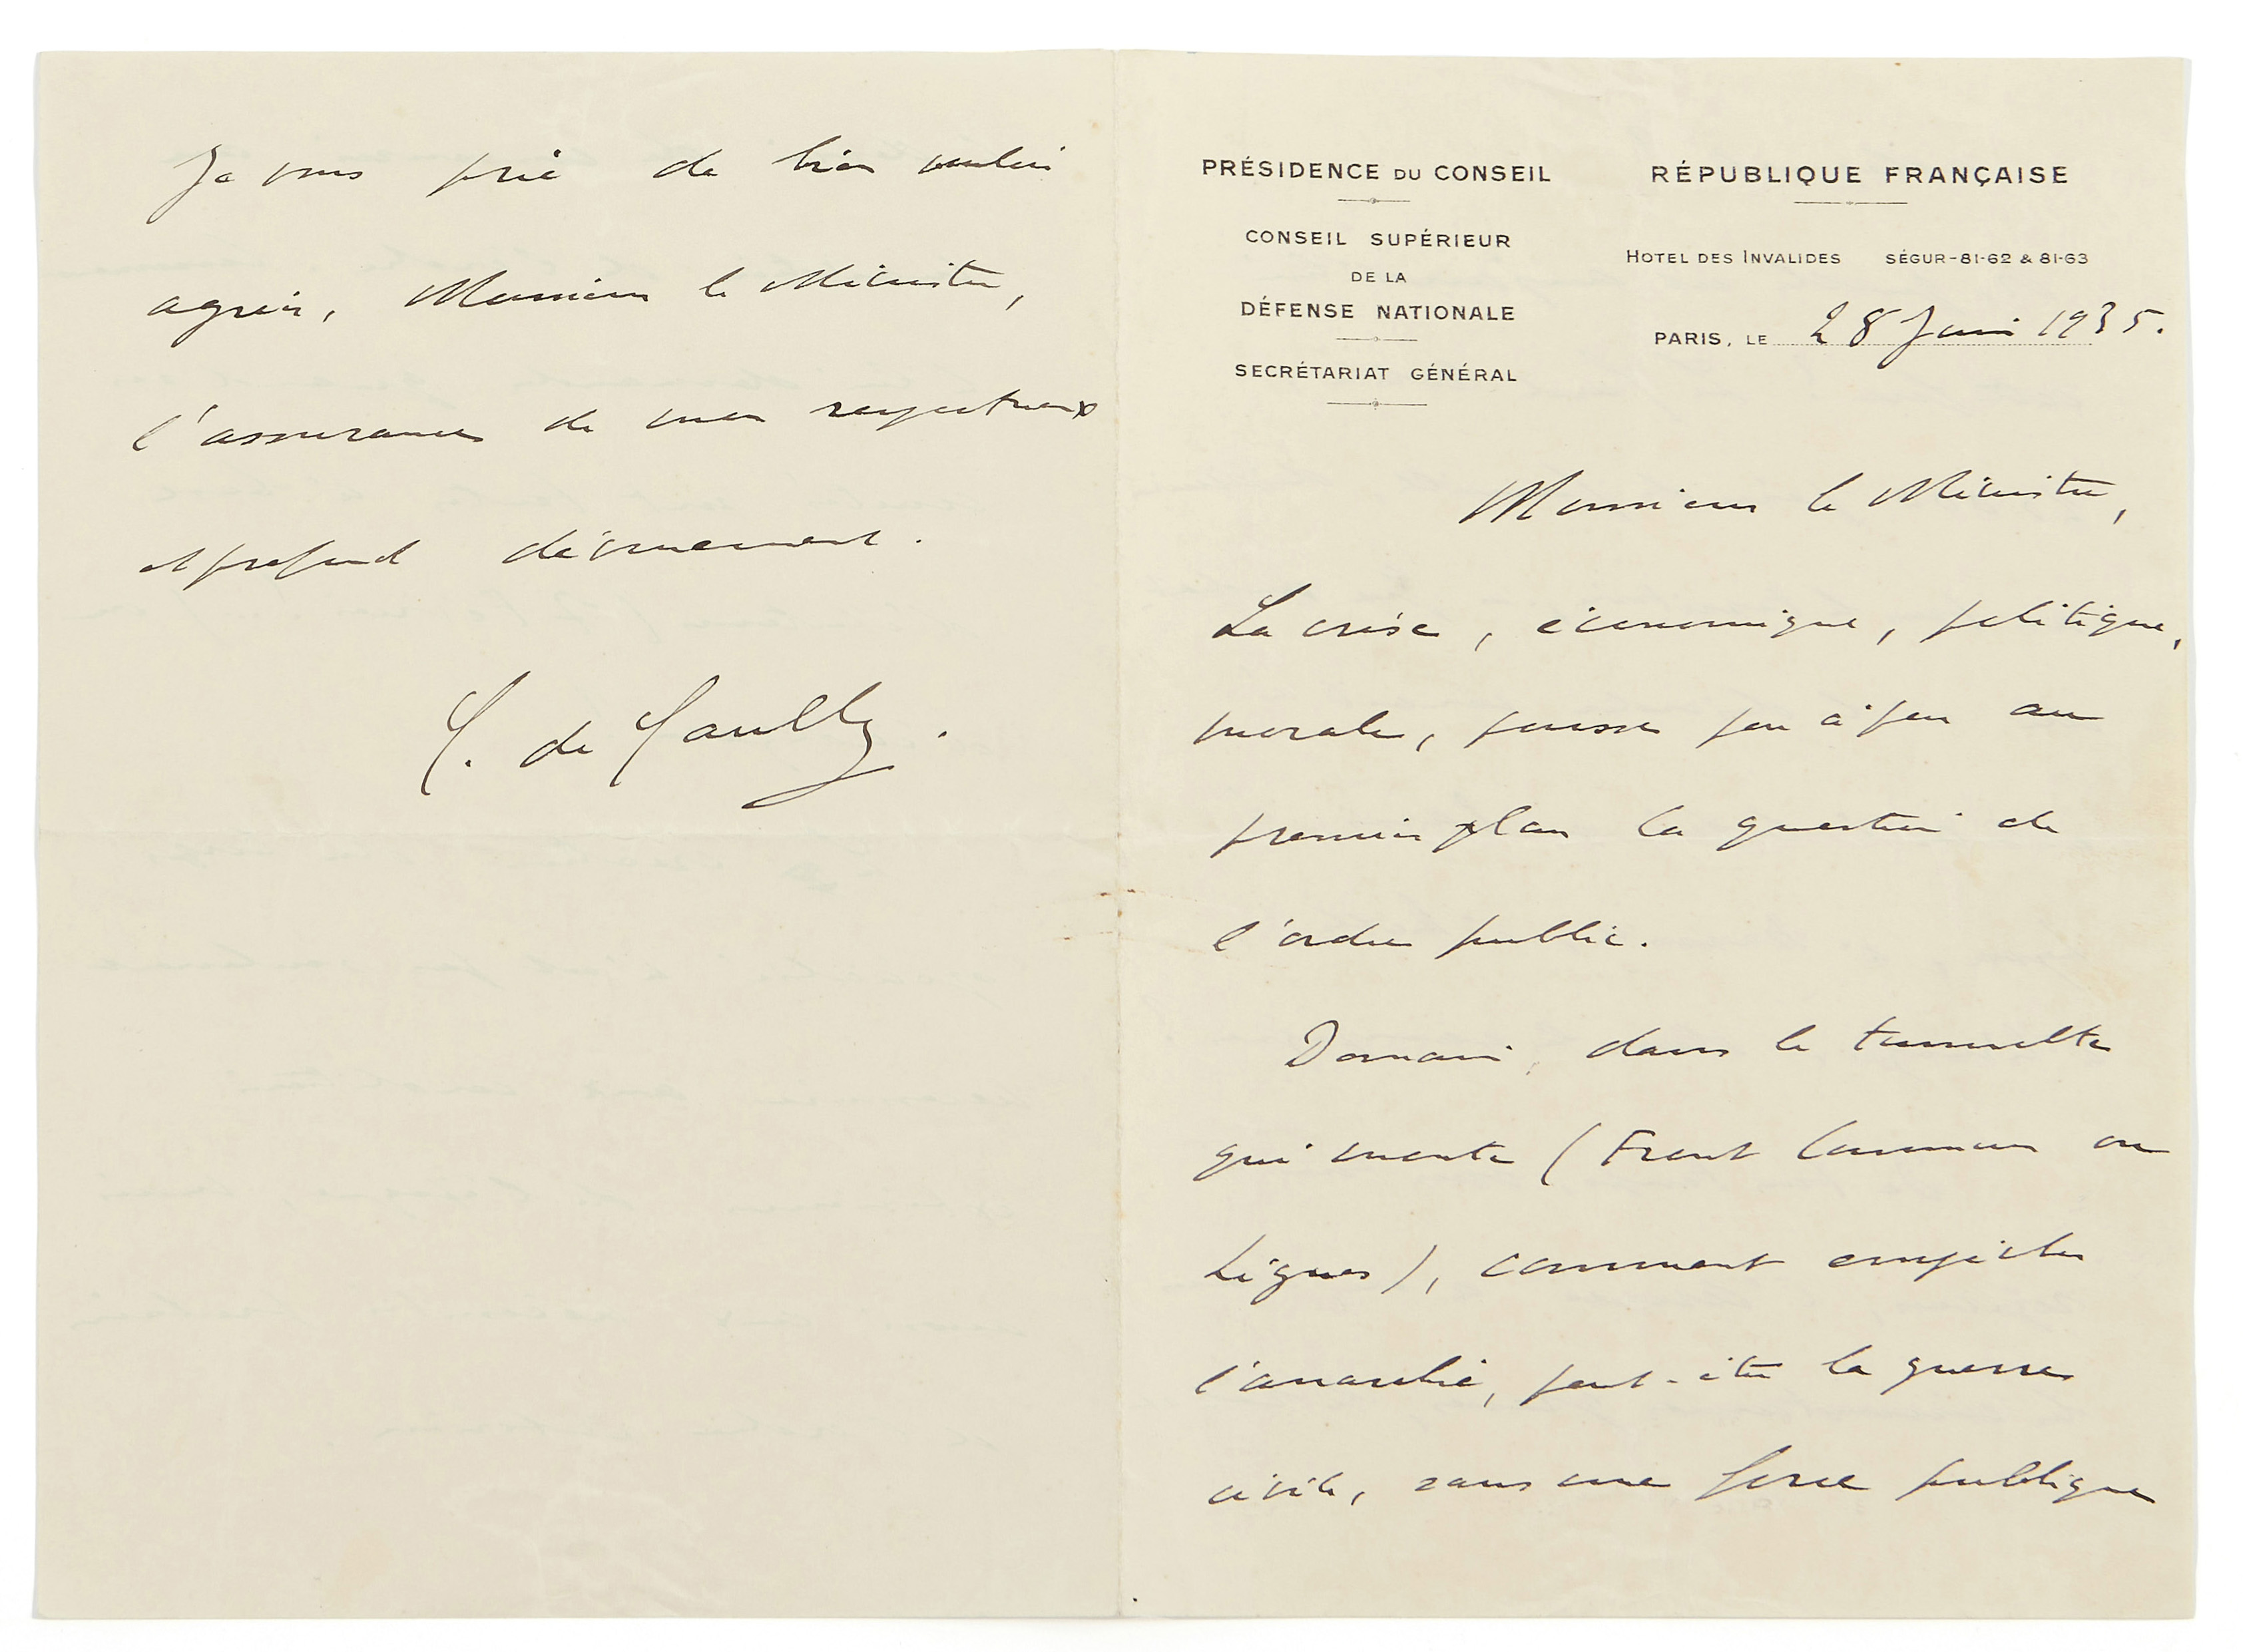 PRÉSIDENCE DU CONSEIL
CONSEIL SUPÉRIEUR
DE LA
DÉFENSE NATIONALE
SECRÉTARIAT GÉNÉRAL
RÉPUBLIQUE FRANÇAISE
HOTEL DES INVALIDES SÉGUR-81-62 & 81-63
PARIS, LE 28 Juin 1935.
Monsieur le Ministre,
La crise, économique, politique,
morale, pousse peu à peu au
premier plan la question de
l'ordre public.
Demain, dans le tumulte
qui monte (Front Commun ou
Ligues), comment empêcher
l'anarchie, peut-être la guerre
civile, sans une force publique
Je vous prie de bien vouloir
agréer, Monsieur le Ministre,
l'assurance de mon respectueux
et profond dévouement.
C. de Gaulle.